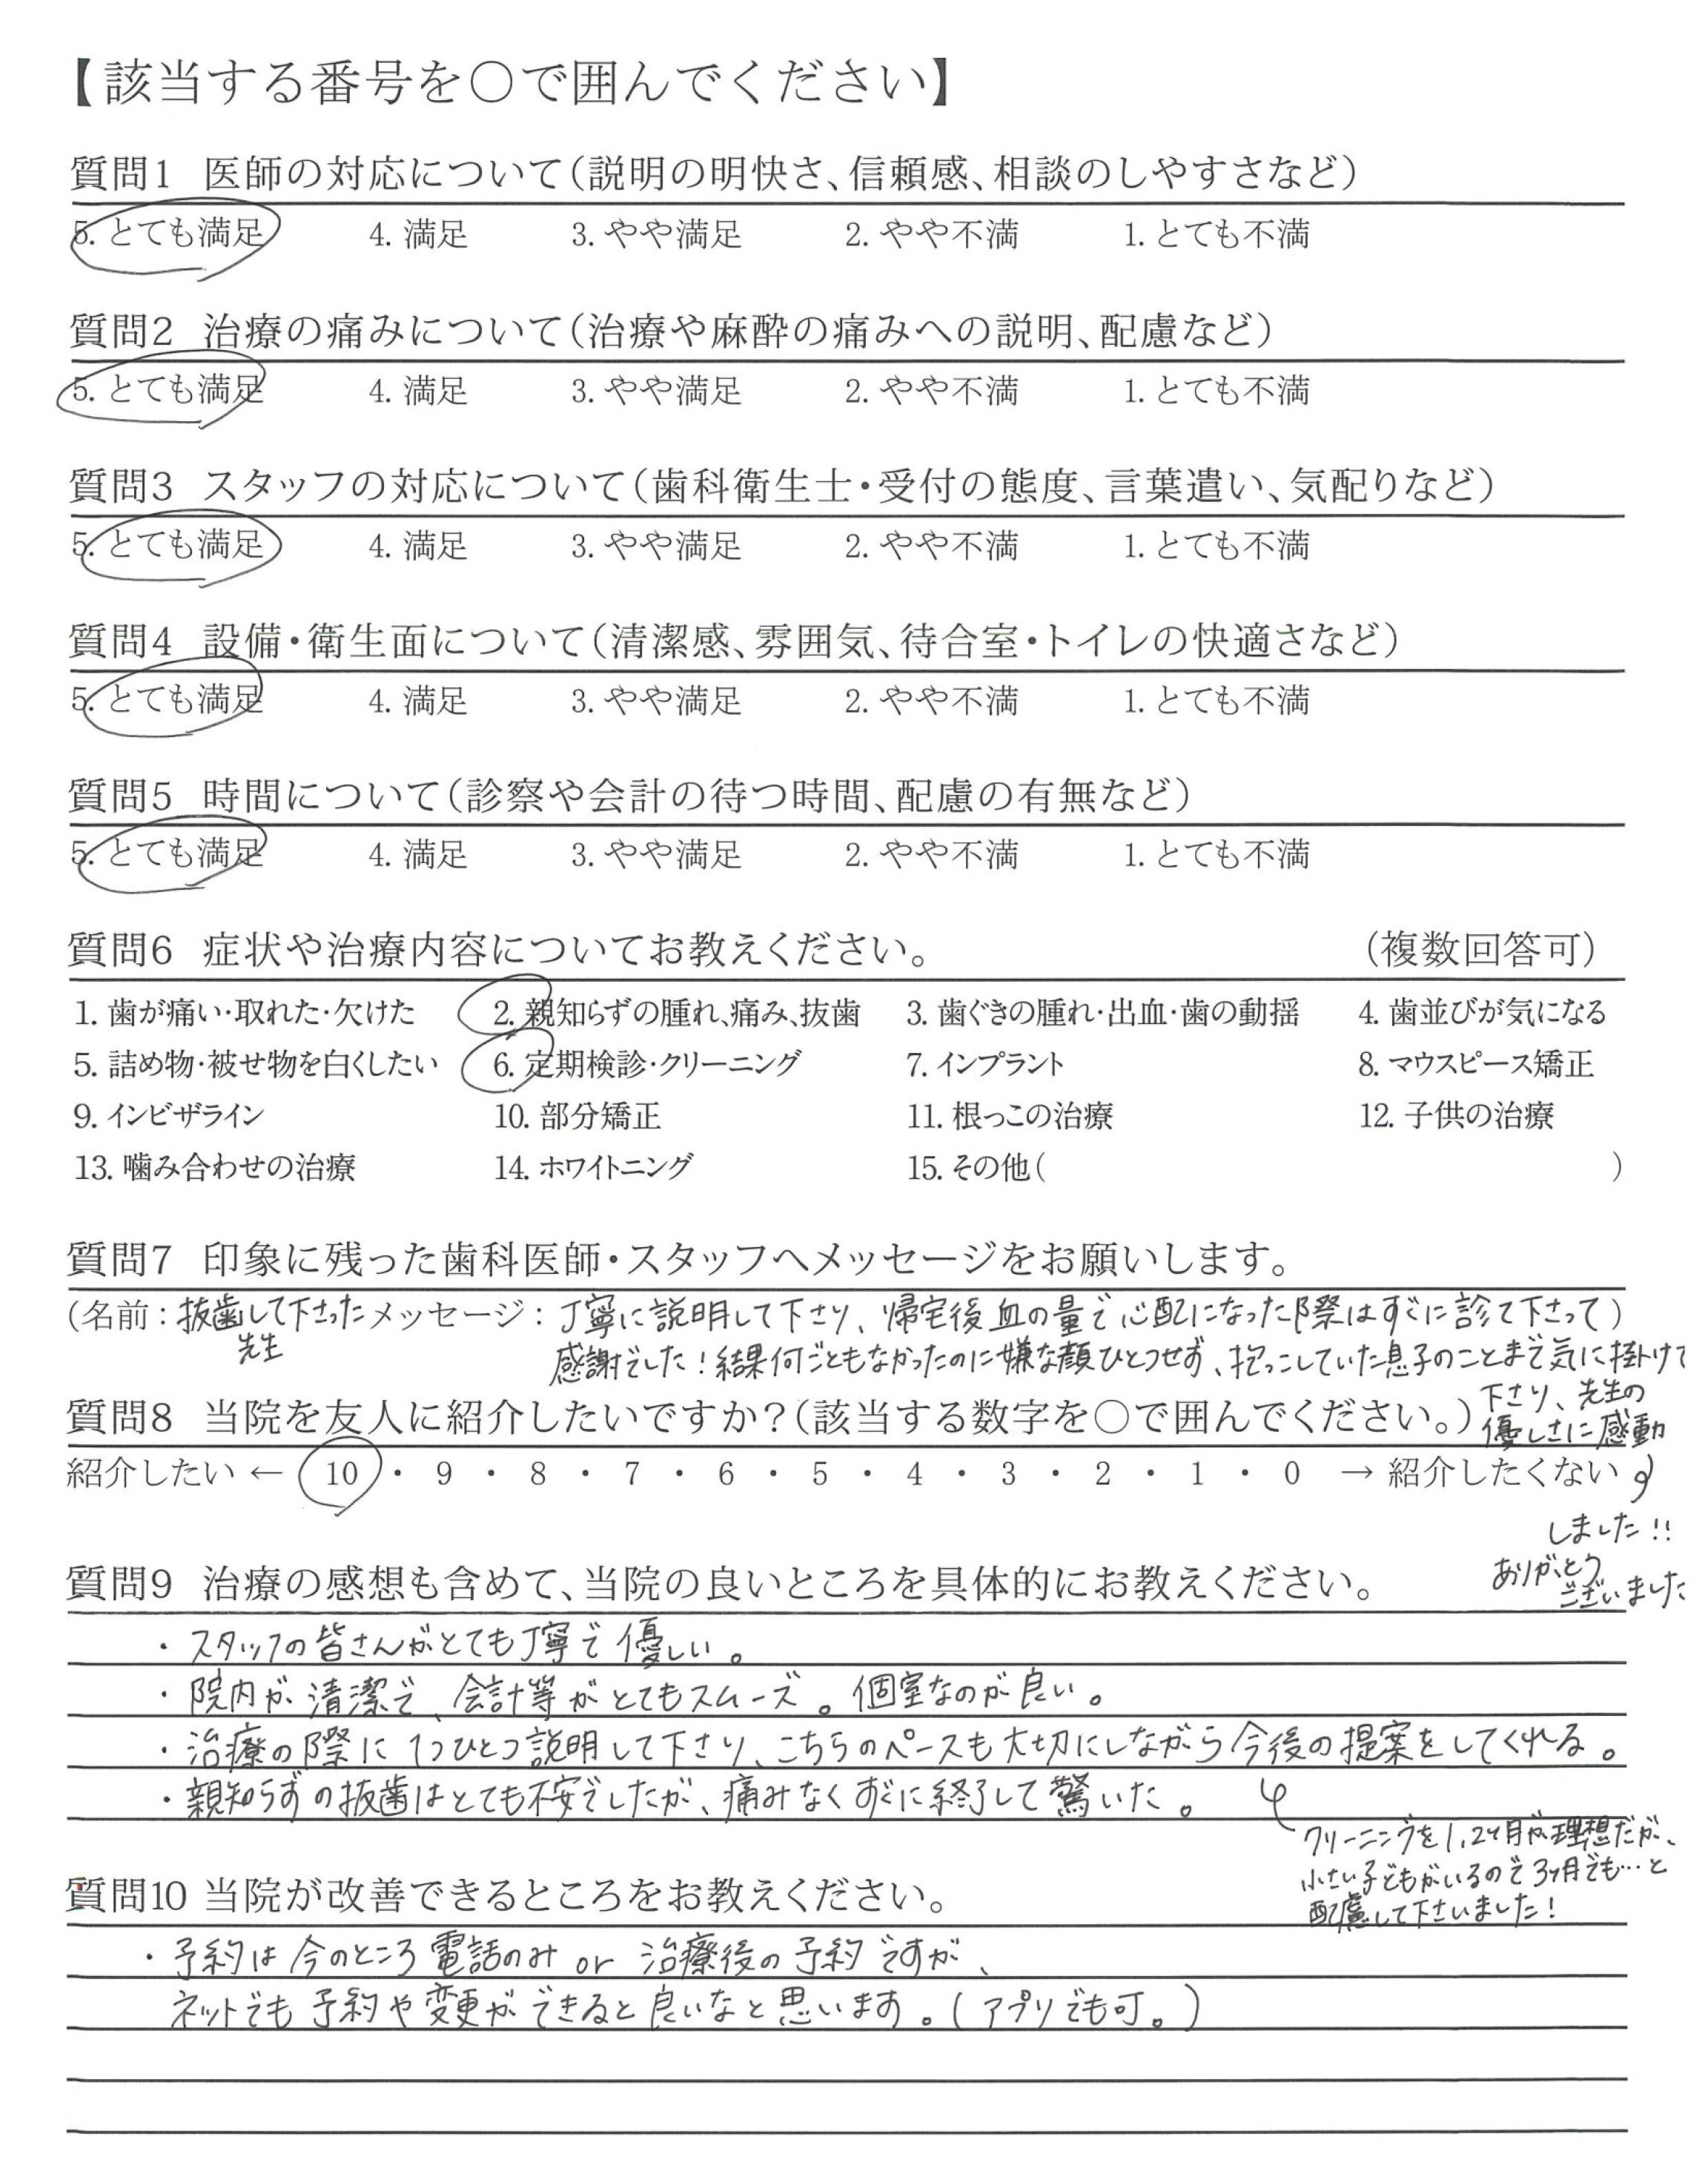 【該当する番号を○で囲んでください】
質問1 医師の対応について（説明の明快さ、信頼感、相談のしやすさなど）
5. とても満足 4. 満足 3. やや満足 2. やや不満 1. とても不満
質問2 治療の痛みについて（治療や麻酔の痛みへの説明、配慮など）
5. とても満足 4. 満足 3. やや満足 2. やや不満 1. とても不満
質問3 スタッフの対応について（歯科衛生士・受付の態度、言葉遣い、気配りなど）
5. とても満足 4. 満足 3. やや満足 2. やや不満 1. とても不満
質問4 設備・衛生面について（清潔感、雰囲気、待合室・トイレの快適さなど）
5. とても満足 4. 満足 3. やや満足 2. やや不満 1. とても不満
質問5 時間について（診察や会計の待つ時間、配慮の有無など）
5. とても満足 4. 満足 3. やや満足 2. やや不満 1. とても不満
質問6 症状や治療内容についてお教えください。 （複数回答可）
1. 歯が痛い・取れた・欠けた 2. 親知らずの腫れ、痛み、抜歯 3. 歯ぐきの腫れ・出血・歯の動揺 4. 歯並びが気になる
5. 詰め物・被せ物を白くしたい 6. 定期検診・クリーニング 7. インプラント 8. マウスピース矯正
9. インビザライン 10. 部分矯正 11. 根っこの治療 12. 子供の治療
13. 噛み合わせの治療 14. ホワイトニング 15. その他（ ）
質問7 印象に残った歯科医師・スタッフへメッセージをお願いします。
（名前：抜歯して下さった先生 メッセージ：丁寧に説明して下さり、帰宅後血の量で心配になった際はすぐに診て下さって）
感謝でした！結果何ごともなかったのに嫌な顔ひとつせず、抱っこしていた息子のことまで気に掛けて
下さり、先生の
優しさに感動
しました!!
ありがとう
ございました
質問8 当院を友人に紹介したいですか？（該当する数字を○で囲んでください。）
紹介したい ← 10 ・ 9 ・ 8 ・ 7 ・ 6 ・ 5 ・ 4 ・ 3 ・ 2 ・ 1 ・ 0 → 紹介したくない
質問9 治療の感想も含めて、当院の良いところを具体的にお教えください。
・スタッフの皆さんがとても丁寧で優しい。
・院内が清潔で、会計等がとてもスムーズ。個室なのが良い。
・治療の際に1つひとつ説明して下さり、こちらのペースも大切にしながら今後の提案をしてくれる。
・親知らずの抜歯はとても不安でしたが、痛みなくすぐに終了して驚いた。
クリーニングを1,2ヶ月が理想だが、
小さい子どもがいるので3ヶ月でも…と
配慮して下さいました！
質問10 当院が改善できるところをお教えください。
・予約は今のところ電話のみ or 治療後の予約ですが、
ネットでも予約や変更ができると良いなと思います。（アプリでも可。）